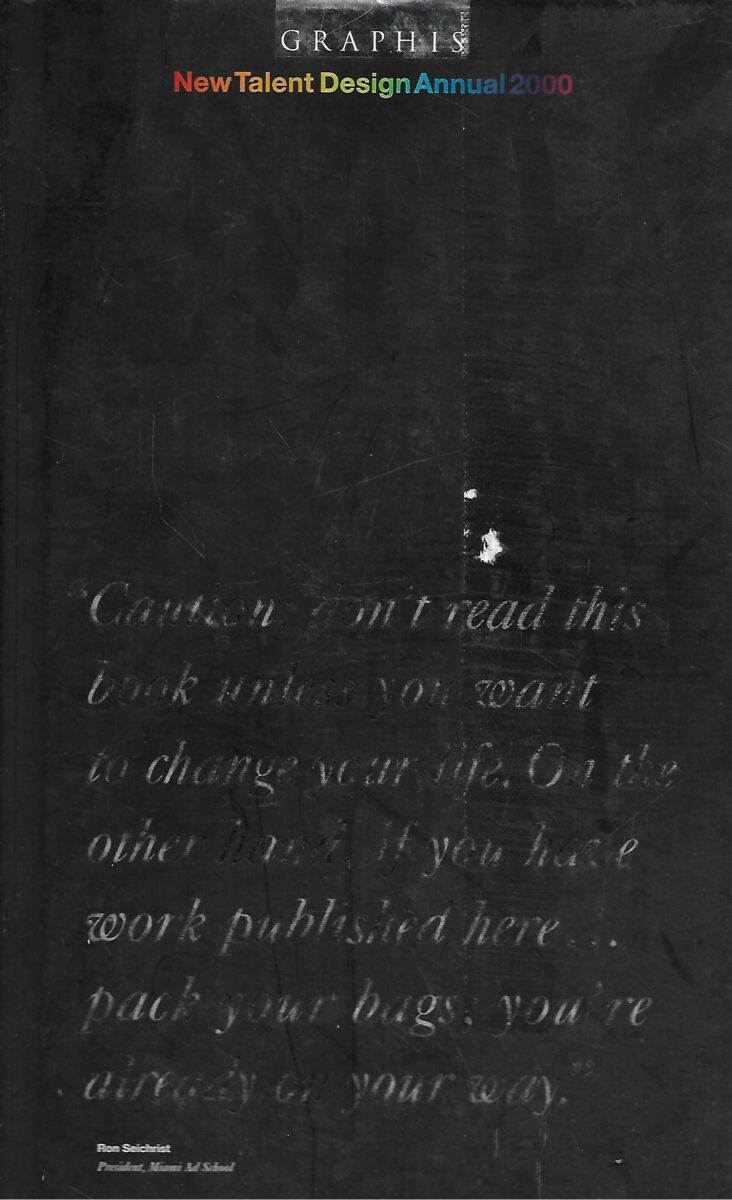 GRAPHIS
New Talent Design Annual 2000
“Caution: don't read this
book unless you want
to change your life. On the
other hand, if you have
work published here...
pack your bags; you're
already on your way.”
Ron Seichrist
President, Miami Ad School